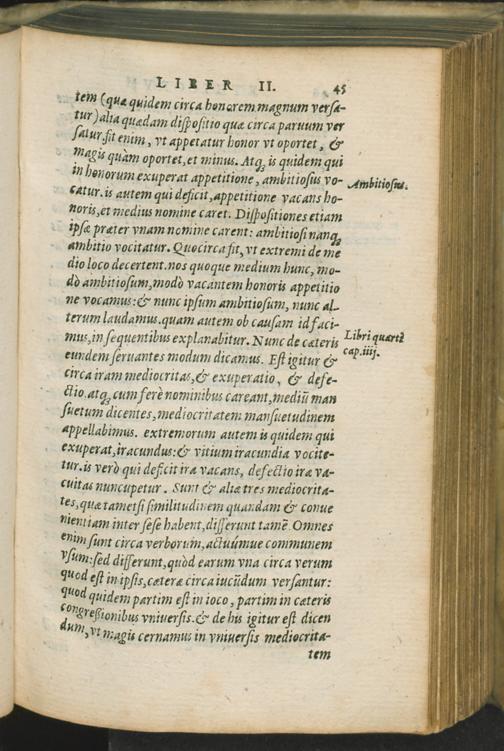 LIBER II. 45
tem (quæ quidem circa honorem magnum versa-
tur) alia quædam dispositio quæ circa paruum ver
satur. fit enim, vt appetatur honor vt oportet, &
magis quàm oportet, et minus. Atq; is quidem qui
in honorum exuperat appetitione, ambitiosus vo-
Ambitiosus.
catur. is autem qui deficit, appetitione vacans ho-
noris, et medius nomine caret. Dispositiones etiam
ipsæ præter vnam nomine carent: ambitiosi nanq;
ambitio vocitatur. Quocirca fit, vt extremi de me
dio loco decertent. nos quoque medium hunc, mo-
dò ambitiosum, modò vacantem honoris appetitio
ne vocamus: & nunc ipsum ambitiosum, nunc al-
terum laudamus. quam autem ob causam id faci-
mus, in sequentibus explanabitur. Nunc de cæteris
Libri quarti
cap. iiij.
eundem seruantes modum dicamus. Est igitur &
circa iram mediocritas, & exuperatio, & defe-
ctio. atq; cum ferè nominibus careant, mediũ man
suetum dicentes, mediocritatem mansuetudinem
appellabimus. extremorum autem is quidem qui
exuperat, iracundus: & vitium iracundia vocite-
tur. is verò qui deficit iræ vacans, defectio iræ va-
cuitas nuncupetur. Sunt & aliæ tres mediocrita-
tes, quæ tametsi similitudinem quandam & conue
nientiam inter sese habent, differunt tamẽ. Omnes
enim sunt circa verborum, actuúmue communem
vsum: sed differunt, quòd earum vna circa verum
quod est in ipsis, cæteræ circa iucũdum versantur:
quod quidem partim est in ioco, partim in cæteris
congressionibus vniuersis. & de his igitur est dicen
dum, vt magis cernamus in vniuersis mediocrita-
tem